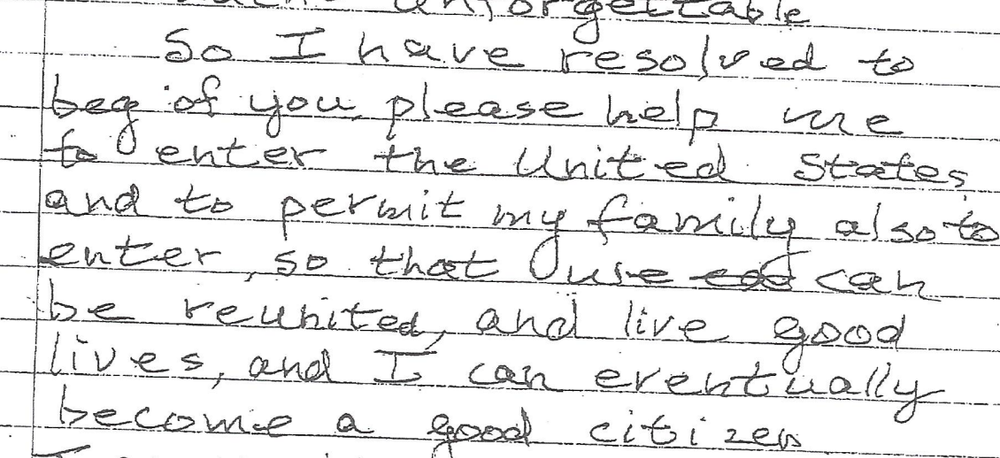 unforgettable
So I have resolved to
beg of you, please help me
to enter the United States
and to permit my family also to
enter, so that we can
be reunited, and live good
lives, and I can eventually
become a good citizen